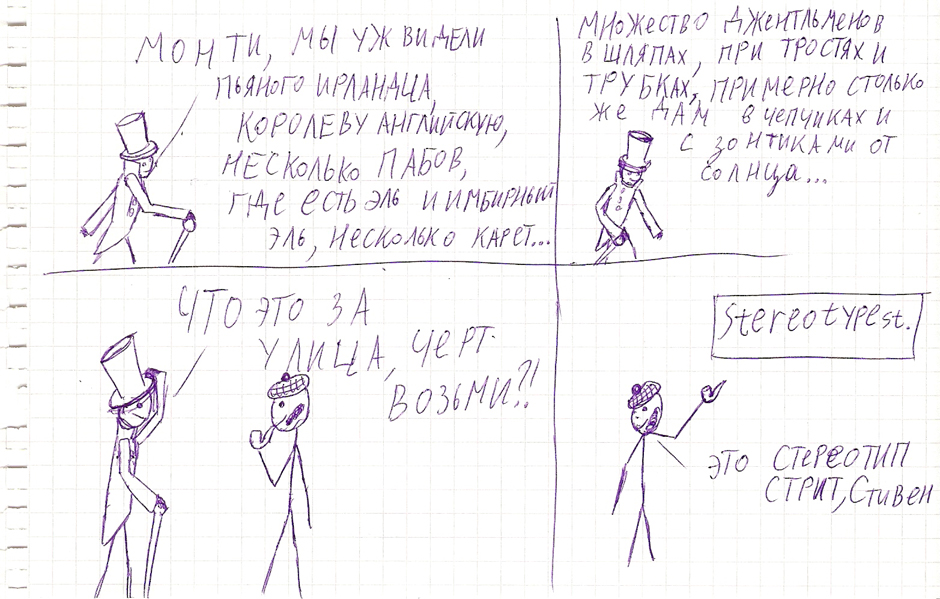 МОНТИ, МЫ УЖ ВИДЕЛИ
ПЬЯНОГО ИРЛАНДЦА,
КОРОЛЕВУ АНГЛИЙСКУЮ,
НЕСКОЛЬКО ПАБОВ,
ГДЕ ЕСТЬ ЭЛЬ И ИМБИРНЫЙ
ЭЛЬ, НЕСКОЛЬКО КАРЕТ...
МНОЖЕСТВО ДЖЕНТЛЬМЕНОВ
В ШЛЯПАХ, ПРИ ТРОСТЯХ И
ТРУБКАХ, ПРИМЕРНО СТОЛЬКО
ЖЕ ДАМ В ЧЕПЧИКАХ И
С ЗОНТИКАМИ ОТ
СОЛНЦА...
ЧТО ЭТО ЗА
УЛИЦА, ЧЕРТ
ВОЗЬМИ?!
Stereotype st.
ЭТО СТЕРЕОТИП
СТРИТ, СТИВЕН